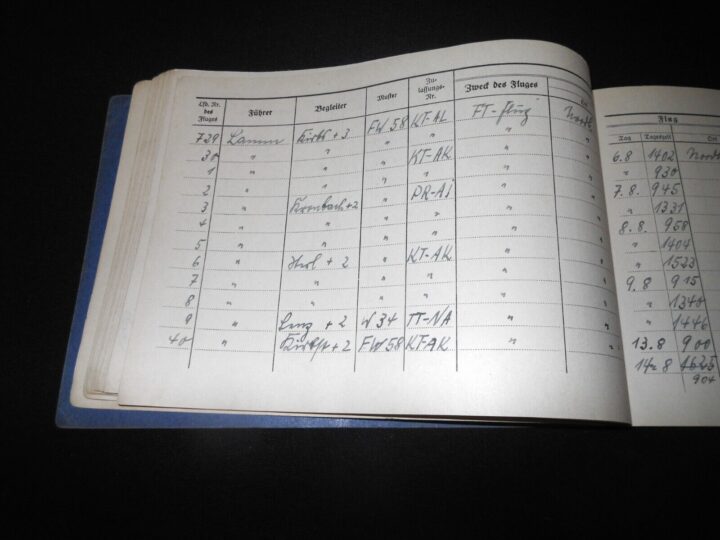 Lfd. Nr. des Fluges Führer Begleiter Muster Zu-lassungs-Nr. Zweck des Fluges Flug
Tag Tageszeit Ort
739 Lamm + 3 FW 58 KT-AL FT-Flug
30 " " " KT-AK " 6.8 1402
1 " " " " " " 930
2 " " " PR-AI " 7.8. 945
3 " Krombach + 2 " " " " 1331
4 " " " " " 8.8. 958
5 " " " " " " 1404
6 " + 2 " KT-AK " " 1523
7 " " " " " 9.8 915
8 " " " " " " 1340
9 " Lenz + 2 W 34 TT-NA " " 1446
40 " + 2 FW 58 KT-AK " 13.8 900
14.8
904